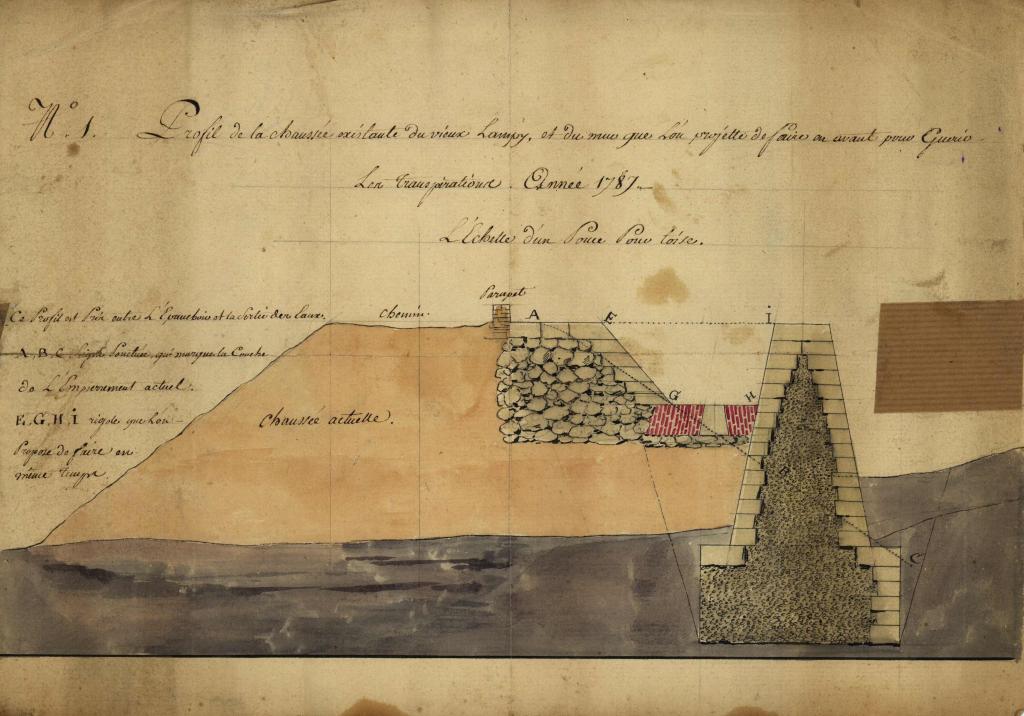 N.º 1. Profil de la chaussée existante du vieux Lampy, et du mur que L'on projette de faire en avant pour Guerir
Les transpirations. Année 1787.
L'Echelle d'un Pouce Pour toise.
Parapet
Ce Profil est Pris entre L'Epanchoir et la Sortie des Eaux.
chemin.
A E I
A, B, C, Ligne Ponctuée, qui marque la Couche
de L'Empierrement actuel.
G H
E, G, H, I rigole que L'on
chaussée actuelle.
Propose de faire en
même temps.
C